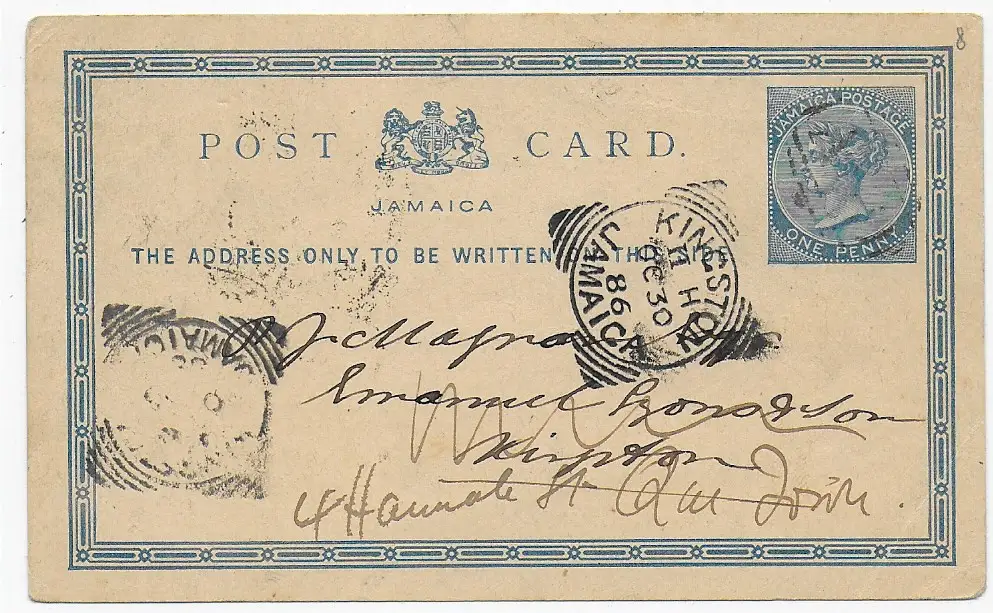 8
POST CARD.
JAMAICA
JAMAICA POSTAGE
ONE PENNY
THE ADDRESS ONLY TO BE WRITTEN THIS SIDE
KINGSTON
H
OC 30
86
JAMAICA
JAMAICA
Emanuel Lyons & Son
Kingston
4 Hannah St